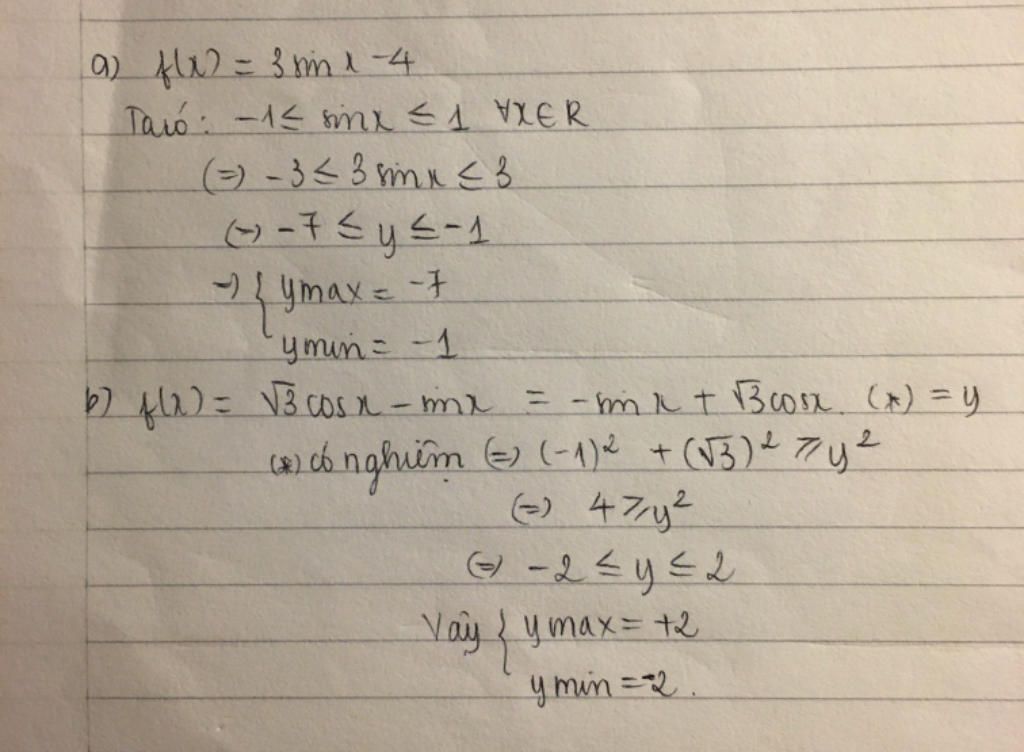 a) f(x) = 3 sin x - 4
Ta có: -1 ≤ sinx ≤ 1 ∀x∈R
(=) -3 ≤ 3 sin x ≤ 3
(=) -7 ≤ y ≤ -1
=) { ymax = -7
ymin = -1
b) f(x) = √3 cos x - sin x = - sin x + √3 cosx. (*) = y
(*) có nghiệm (=) (-1)² + (√3)² ≥ y²
(=) 4 ≥ y²
(=) -2 ≤ y ≤ 2
Vậy { y max = +2
y min = -2.